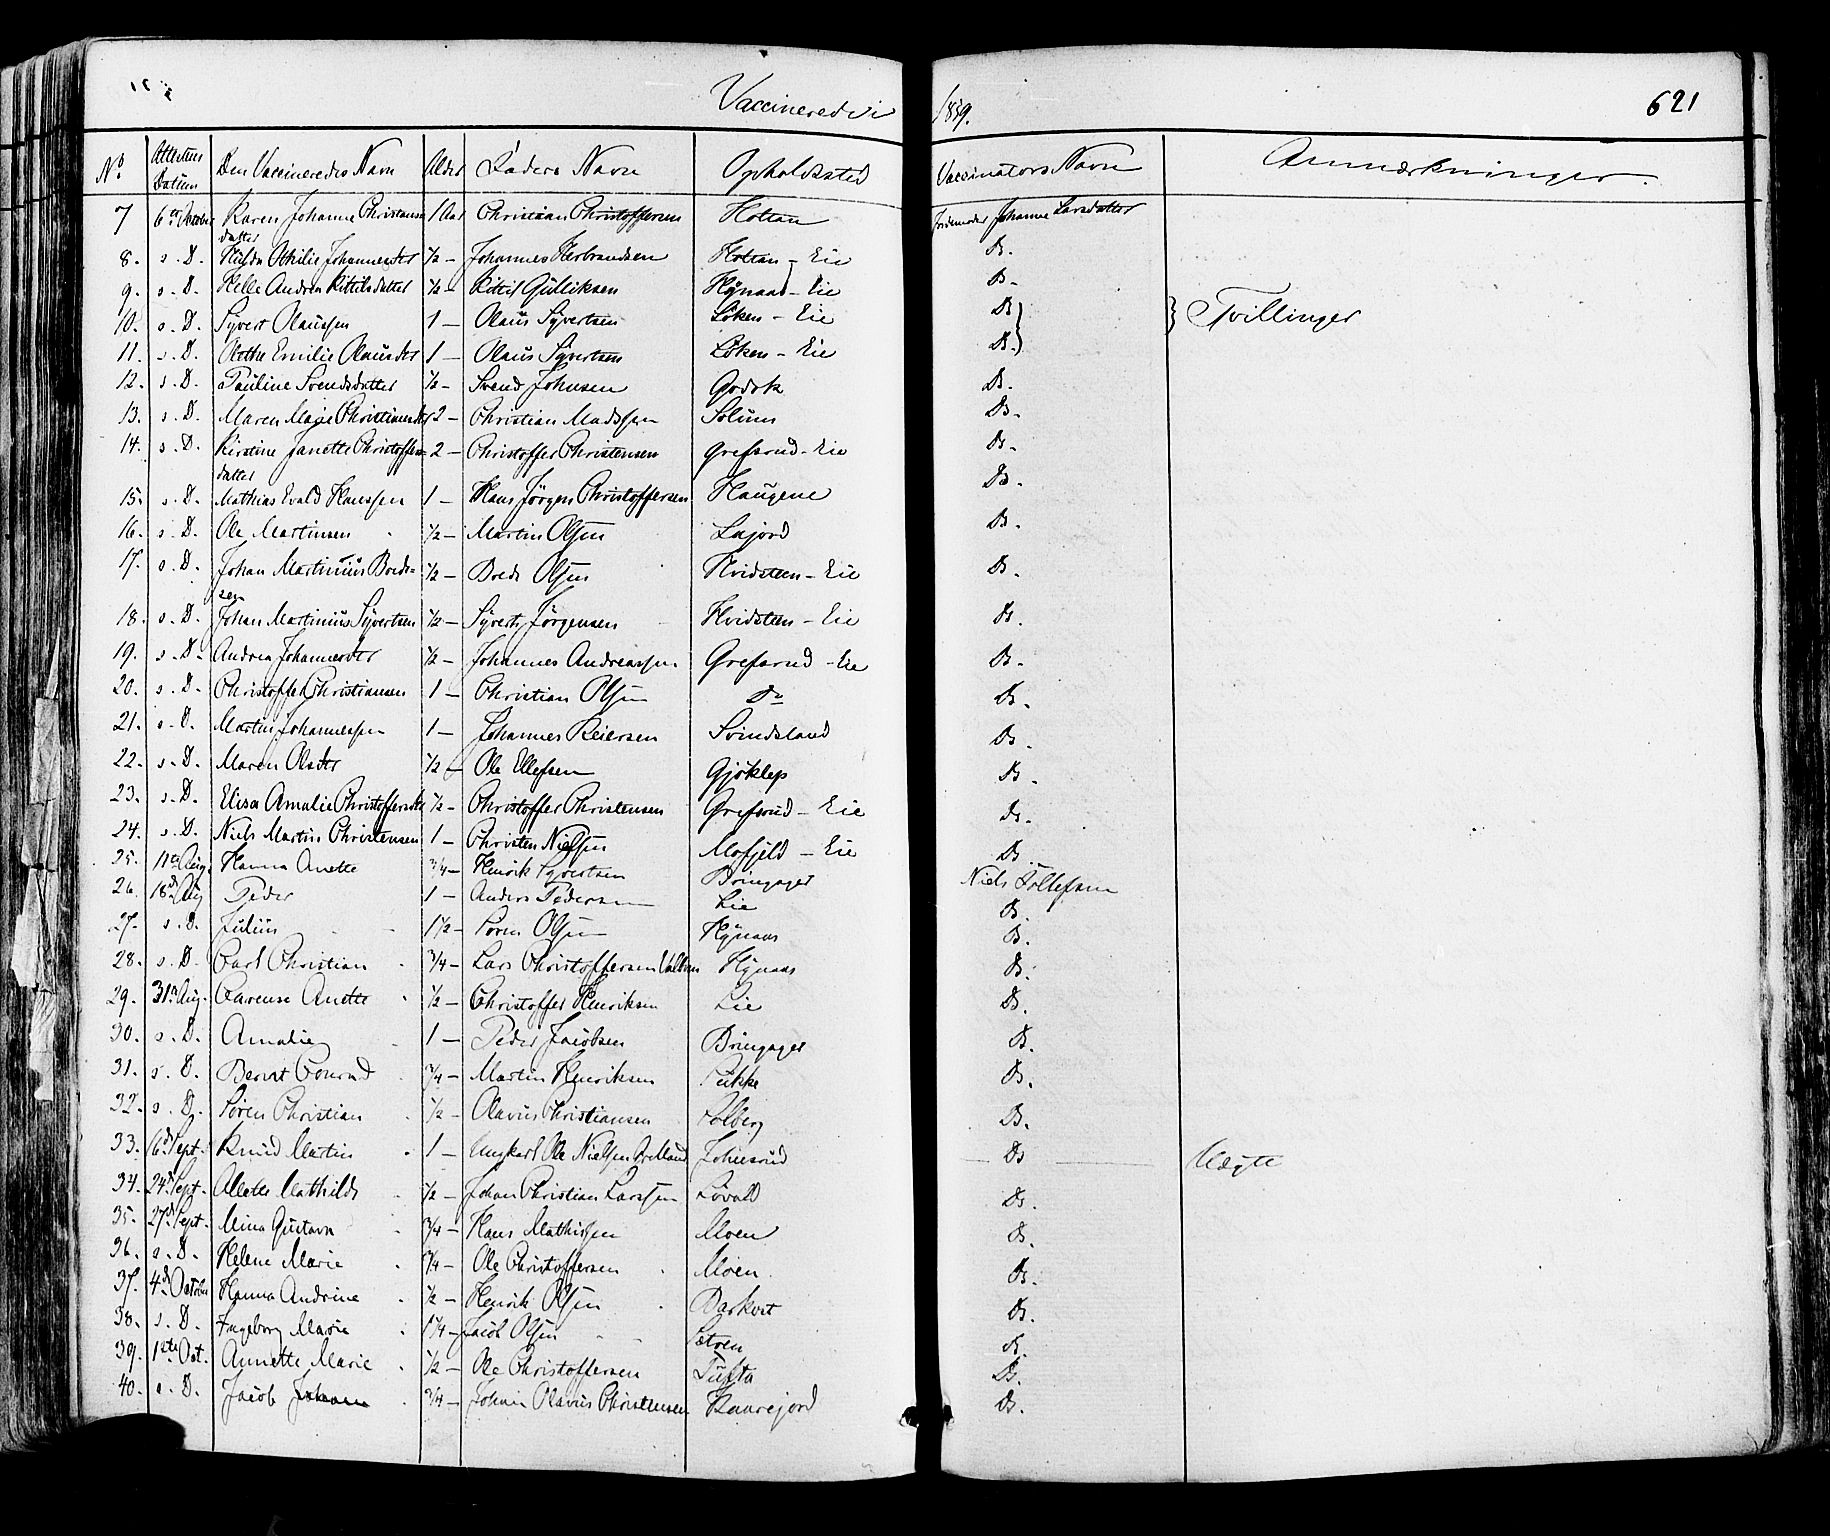 Vaccinerede i 1859.
621
No Attestens Datum Den Vaccineredes Navn Alder Faders Navn Opholdssted Vaccinators Navn Anmærkninger.
7 6te October Karen Johanne Christians 1 Aar Christian Christoffersen Holtan Jordemoder Johanne Larsdatter
datter
8. s. D. Hulda Othilie Johannesdtr ½ — Johannes Herbrandsen Holtan - Eie D.
9. s. D. Helle Andrea Kittilsdatter ½ — Kittil Gulliksen Hynaas - Eie D.
10. s. D. Syvert Olaussen 1 — Olaus Syvertsen Löken - Eie D. } Tvillinger
11. s. D. Emilie Olausdtr 1 — Olaus Syvertsen Löken - Eie D.
12. s. D. Pauline Svendsdatter ½ — Svend Johnsen D.
13. s. D. Maren Marie Christiansdtr 2 — Christian Madssen Solum D.
14. s. D. Kirstine Janette Christoffers= 2 — Christoffer Christensen Grefsrud - Eie D.
datter
15. s. D. Mathias Evald Hanssen 1 — Hans Jørgen Christoffersen Haugene D.
16. s. D. Ole Martinsen ½ — Martin Olsen Lajord D.
17. s. D. Johan Martinius Breds= ½ — Brede Olsen Hvidsteen - Eie D.
sen
18. s. D. Johan Martinius Syvertsen ½ — Syvert Jørgensen Hvidsteen - Eie D.
19. s. D. Andrea Johannesdtr ½ — Johannes Andreassen Grefsrud - Eie D.
20. s. D. Christoffer Christiansen 1 — Christian Olsen Do D.
21. s. D. Martin Johannessen 1 — Johannes Reiersen Svindsland D.
22. s. D. Maren Olsdtr ½ — Ole Ellefsen Gjöklep D.
23. s. D. Elisa Amalie Christoffersdtr ½ — Christoffer Christensen Grefsrud - Eie D.
24. s. D. Niels Martin Christensen 1 — Christen Nielsen Mofjeld - Eie D.
25. 11te Aug. Hanna Anette ¾ — Henrik Syvertsen Bringager Niels Tollefsen
26. 18de Aug Peder 1 — Anders Pedersen Lie D.
27. s. D. Julius 1½ — Soren Olsen Hynaas D.
28. s. D. Carl Christian ¾ — Lars Christoffersen Hynaas D.
29. 31te Aug. Carense Anette ½ — Christoffer Henriksen Lie D.
30. s. D. Amalie 1 — Peder Jacobsen Bringager D.
31. s. D. Bernt Conrad ¾ — Martin Henriksen D.
32. s. D. Søren Christian ½ — Olavus Christiansen Solberg D.
33. 6de Sept. Knud Martin 1 — Ungkarl Ole Nielsen Johnsrud D. Uægte
34. 24de Sept. Mathilde ½ — Johan Christian Larssen Løvald D.
35. 27de Sept. Mina Gustava ¾ — Hans Mathissen Moen D.
36. s. D. Helene Marie ¾ — Ole Christoffersen Moen. D.
37. 4de October Hanna Andrine ½ — Henrik Olsen D.
38. s. D. Ingeborg Marie 1¼ — Jacob Olsen Sætren D.
39. 1ste Oct. Annette Marie ½ — Ole Christoffersen Tufta D.
40. s. D. Jacob Johann ¾ — Johan Olavus Christensen Kaarejord D.